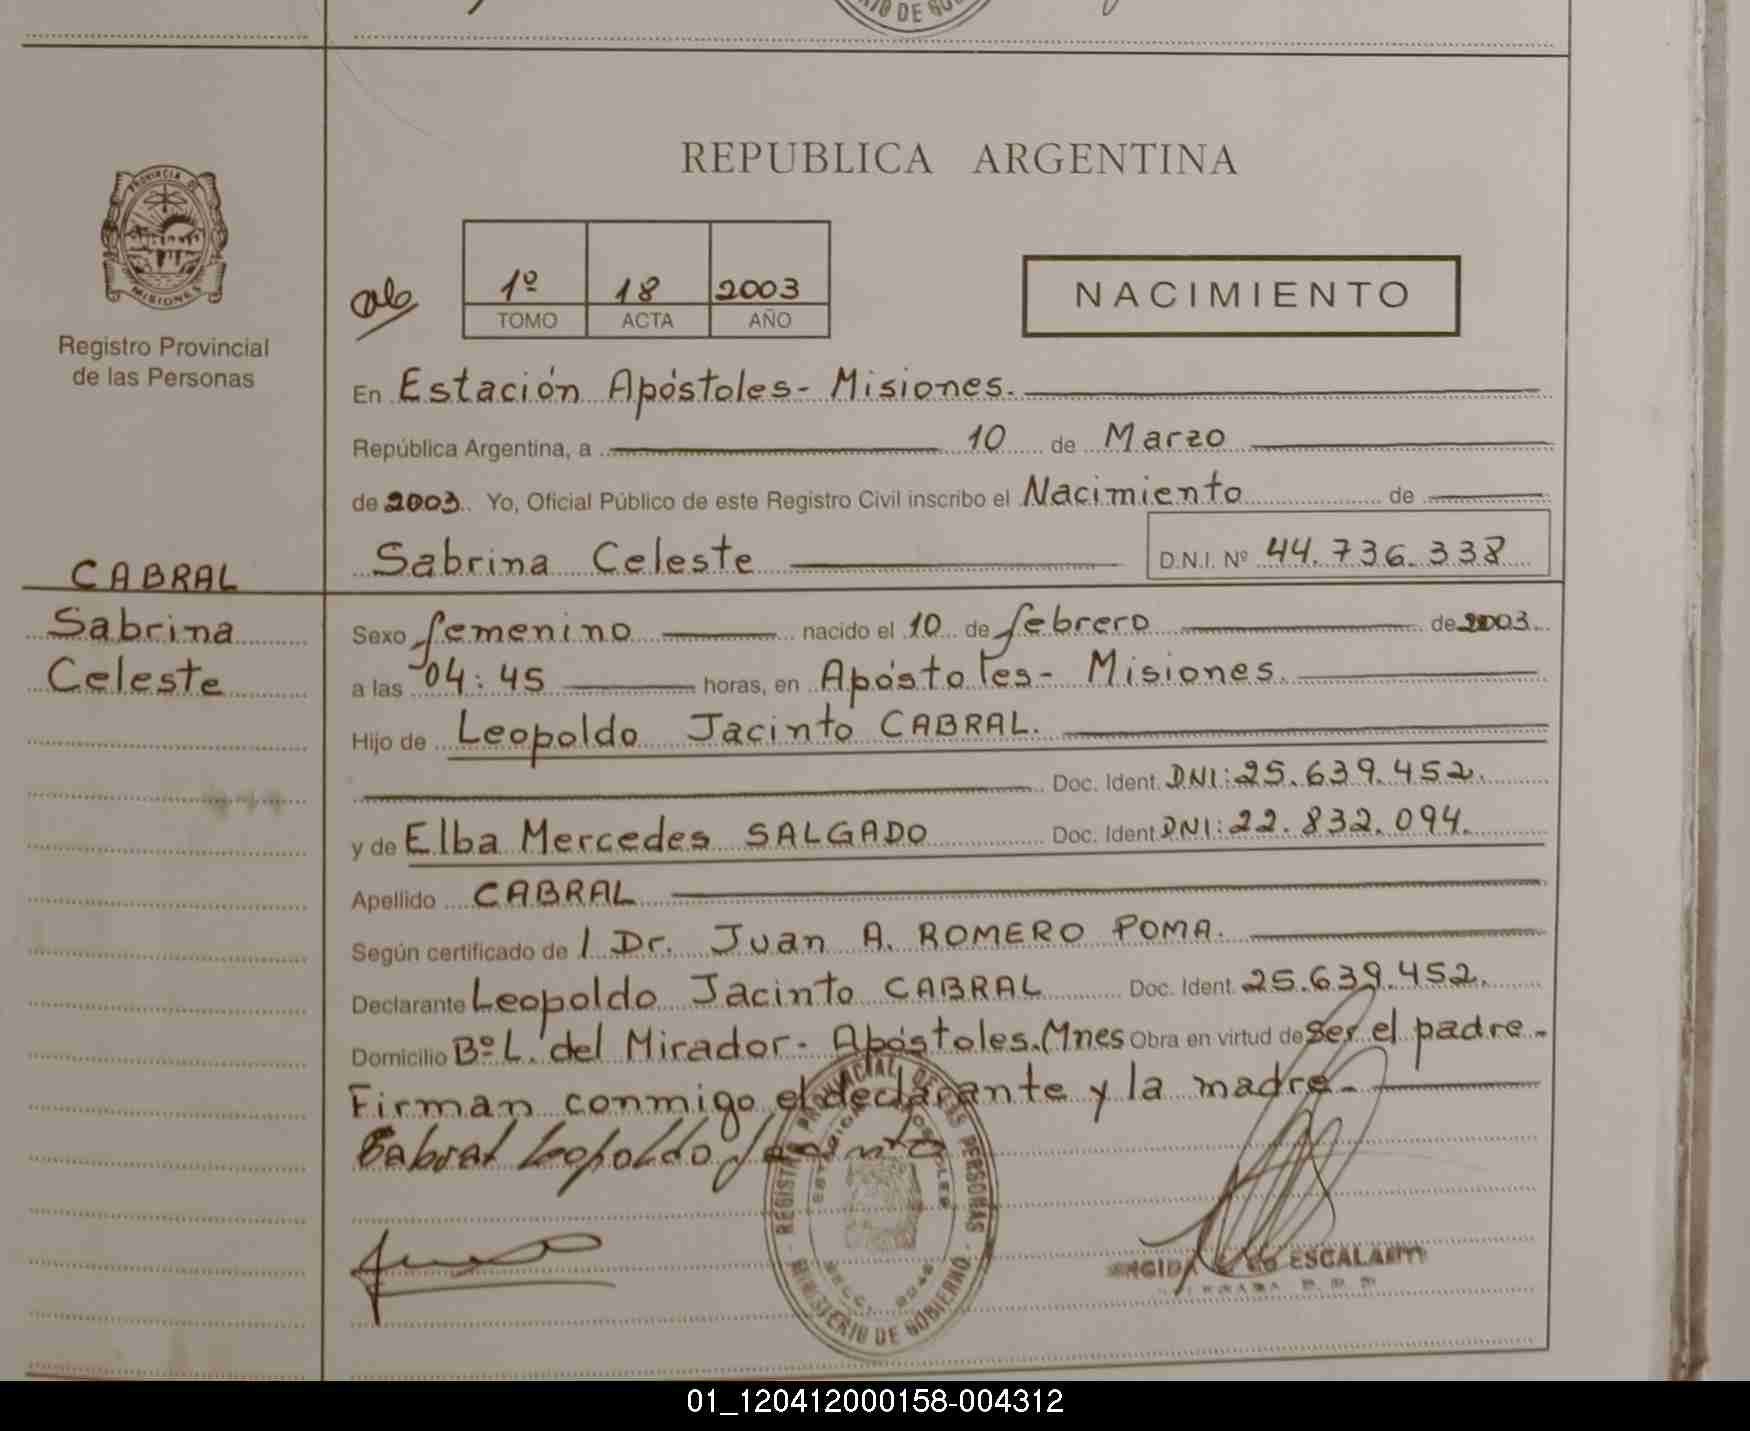 RIO DE GOB
REPUBLICA ARGENTINA
PROVINCIA DE
MISIONES
Registro Provincial
de las Personas
1º 18 2003
TOMO ACTA AÑO
NACIMIENTO
En Estación Apóstoles - Misiones.
República Argentina, a 10 de Marzo
de 2003. Yo, Oficial Público de este Registro Civil inscribo el Nacimiento de
Sabrina Celeste D.N.I. Nº 44.736.338
CABRAL
Sabrina
Celeste
Sexo femenino nacido el 10 de febrero de 2003
a las 04:45 horas, en Apóstoles - Misiones.
Hijo de Leopoldo Jacinto CABRAL.
Doc. Ident. DNI: 25.639.452.
y de Elba Mercedes SALGADO Doc. Ident DNI: 22.832.094.
Apellido CABRAL
Según certificado de / Dr. Juan A. ROMERO POMA.
Declarante Leopoldo Jacinto CABRAL Doc. Ident. 25.639.452.
Domicilio Bº L. del Mirador - Apóstoles. Mnes Obra en virtud de ser el padre -
Firman conmigo el declarante y la madre -
Cabral Leopoldo Jacinto
REGISTRO PROVINCIAL DE LAS PERSONAS
MINISTERIO DE GOBIERNO
ESCALANTE
01_120412000158-004312